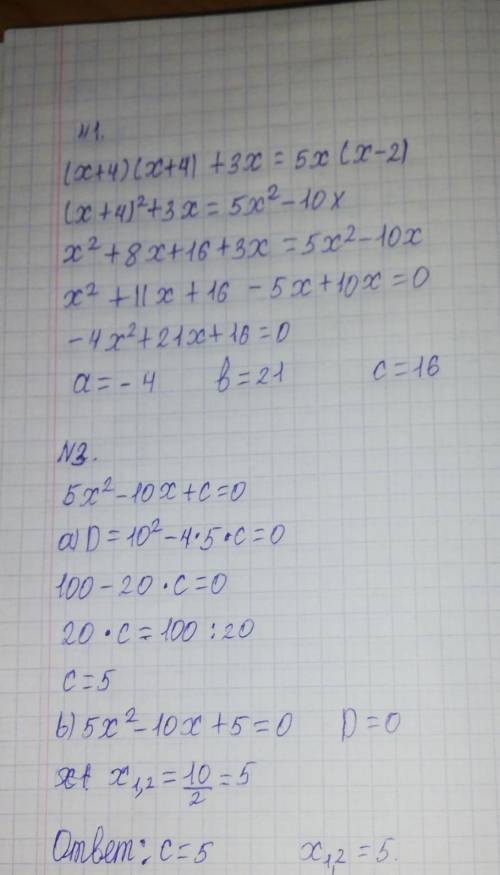 N1.
(x+4)(x+4) + 3x = 5x (x-2)
(x+4)² + 3x = 5x² - 10x
x² + 8x + 16 + 3x = 5x² - 10x
x² + 11x + 16 - 5x + 10x = 0
-4x² + 21x + 16 = 0
a = -4 b = 21 c = 16
N3.
5x² - 10x + c = 0
a) D = 10² - 4·5·c = 0
100 - 20·c = 0
20·c = 100 : 20
c = 5
b) 5x² - 10x + 5 = 0 D = 0
x₁,₂ = 10/2 = 5
Ответ: c = 5 x₁,₂ = 5.